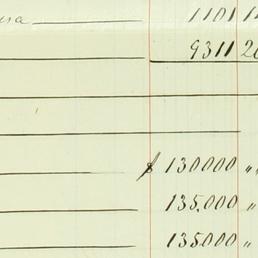 1101
9311 20
$ 130.000 "
135.000 "
135.000 "